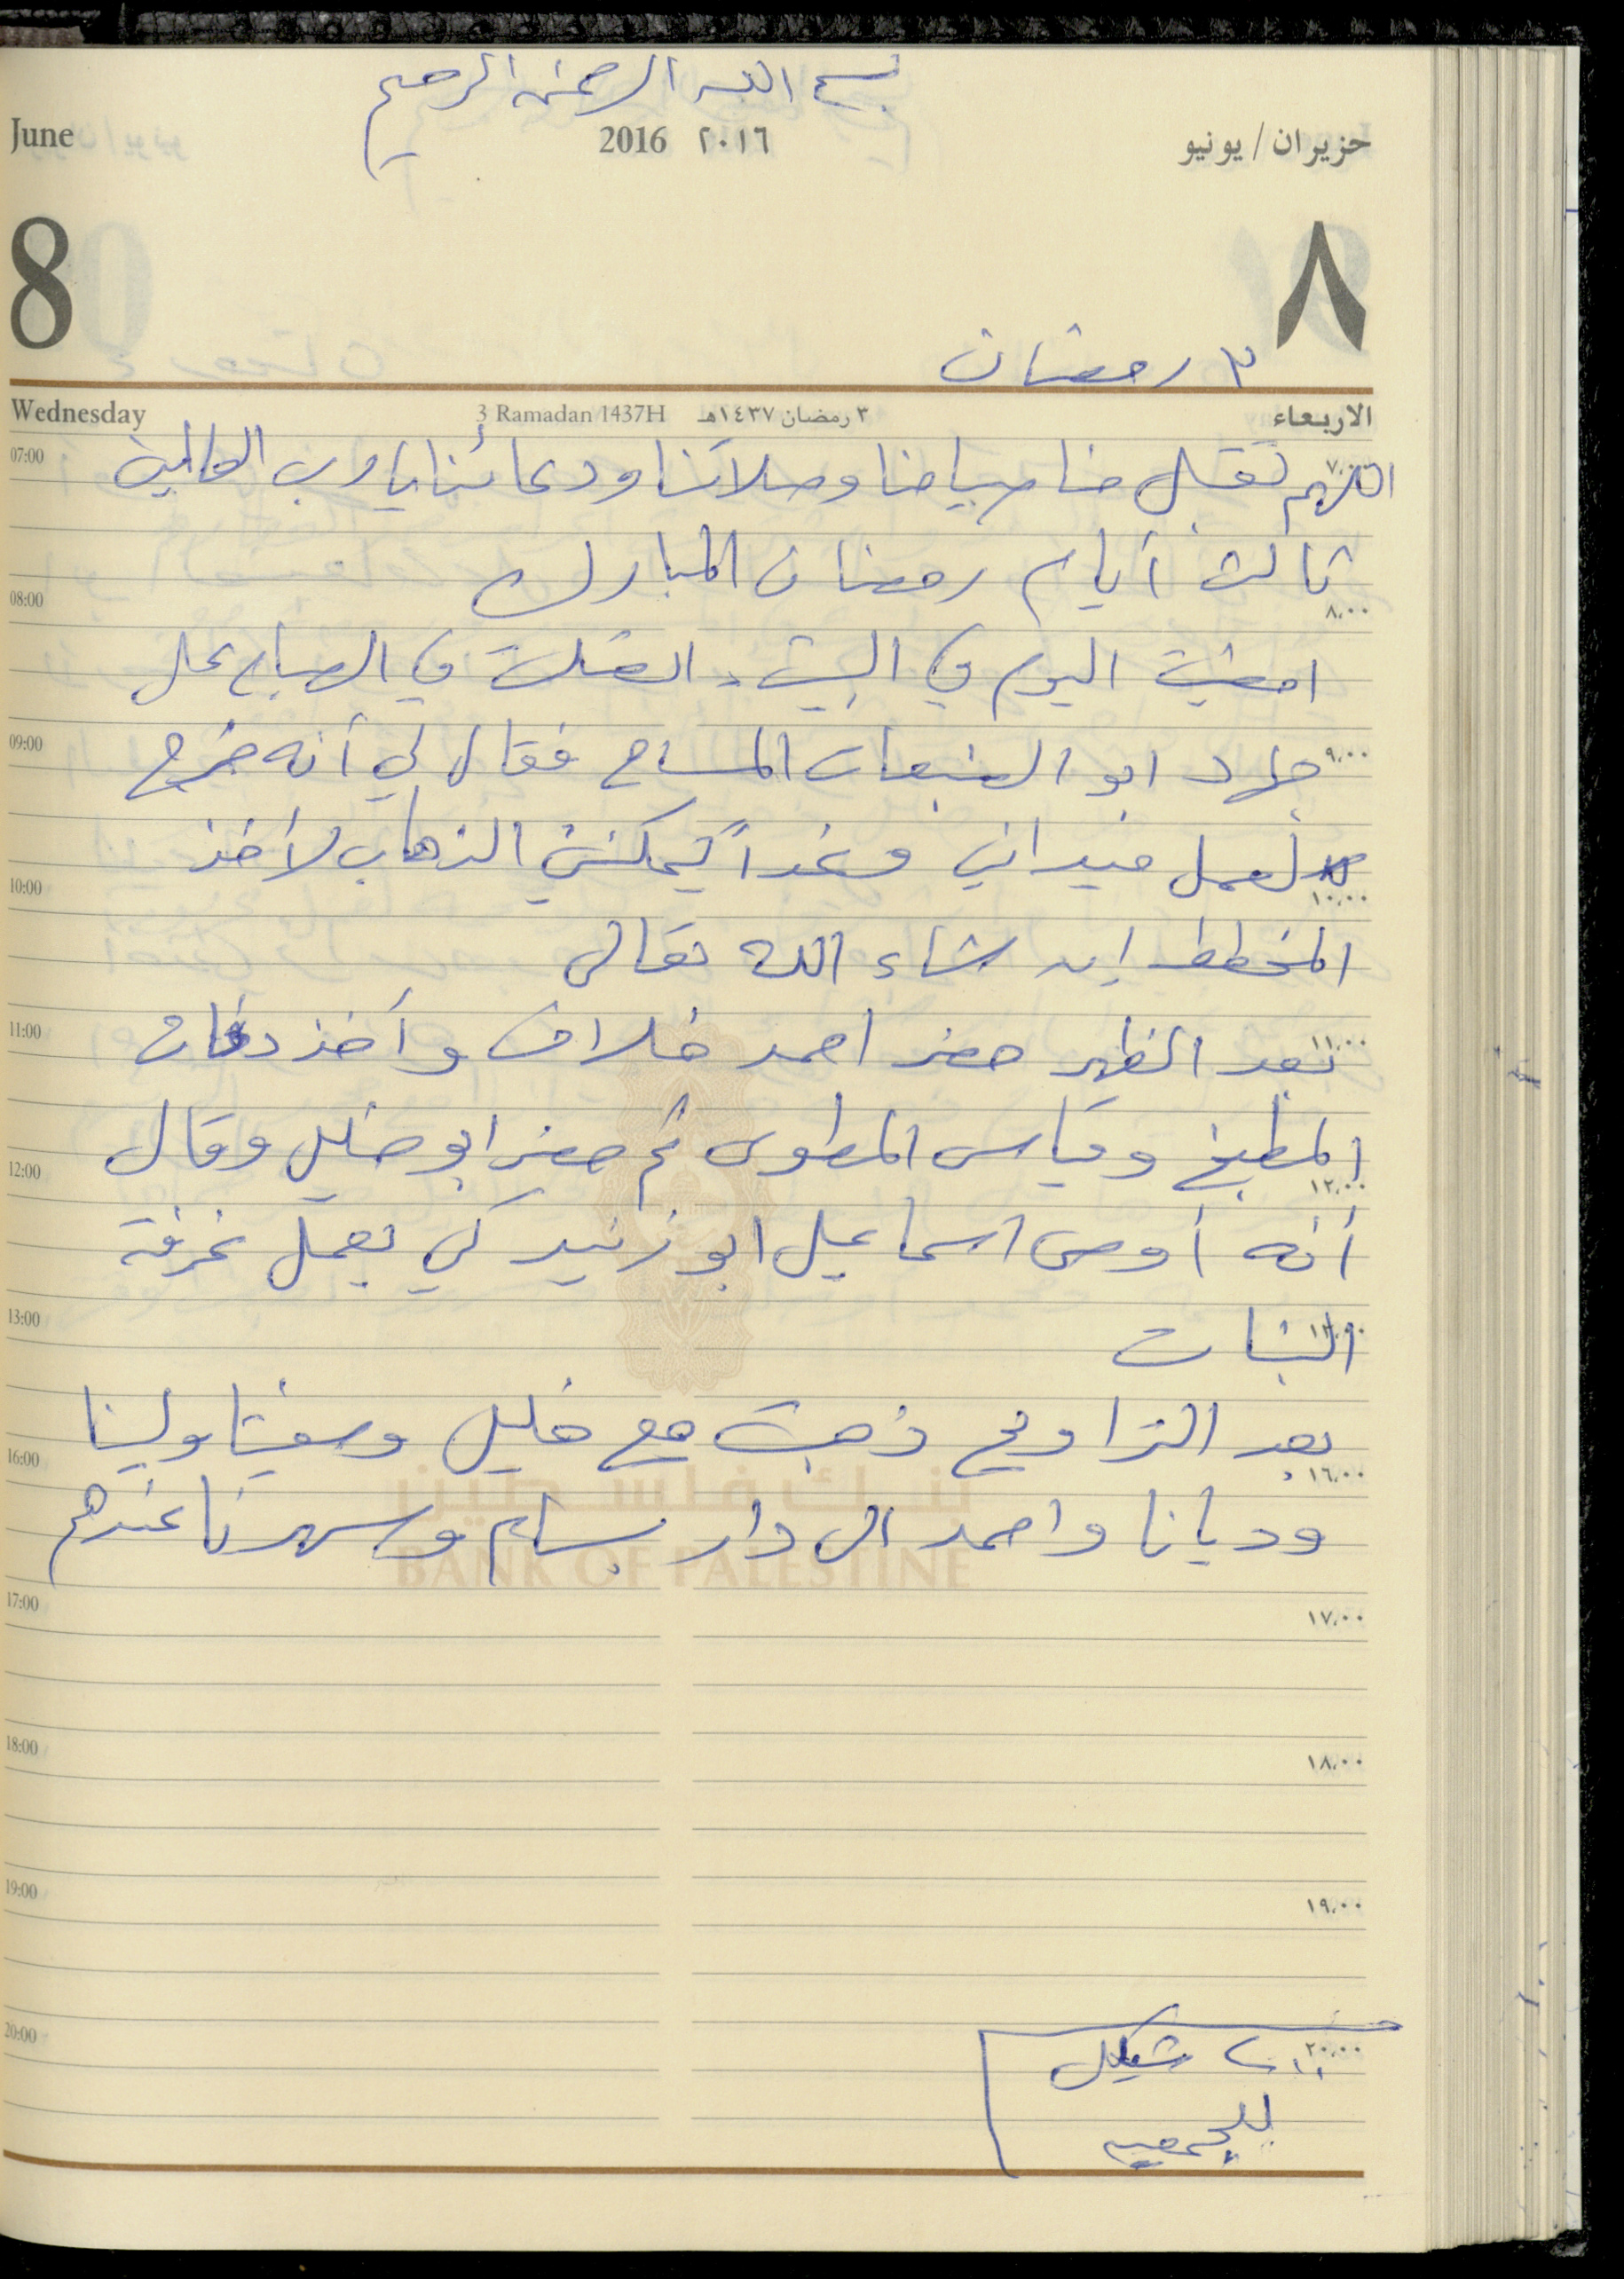 بسم الله الرحمن الرحيم
June 2016 ٢٠١٦ حزيران / يونيو
8 ٨
٣ رمضان
Wednesday 3 Ramadan 1437H ٣ رمضان ١٤٣٧هـ الاربعاء
07:00 ٧:٠٠
اللهم تقبل منا صيامنا وصلاتنا ودعائنا يا رب العالمين
ثالث أيام رمضان المبارك
08:00 ٨:٠٠
امضيت اليوم في البيت. اتصلت في الصباح على
09:00 ٩:٠٠
جهاد ابو المساح فقال لي أنه خرج
لعمل ميداني وغداً يمكنني الذهاب لأخذ
10:00 ١٠:٠٠
المخطط ان شاء الله تعالى
11:00 ١١:٠٠
بعد الظهر حضر احمد خلاف وأخذ
المطبخ وقياس المطوى ثم حضر ابو خليل وقال
12:00 ١٢:٠٠
أنه أوصى اسماعيل ابو زنيد كي يعمل غرفة
13:00 ١٣:٠٠
البنات
بعد التراويح ذهبت مع خليل ولينا
16:00 ١٦:٠٠
بنك فلسطين
وديانا واحمد الى دار بسام وسهرنا عندهم
BANK OF PALESTINE
17:00 ١٧:٠٠
18:00 ١٨:٠٠
19:00 ١٩:٠٠
20:00 ٢٠:٠٠
شيكل
للجمعيه